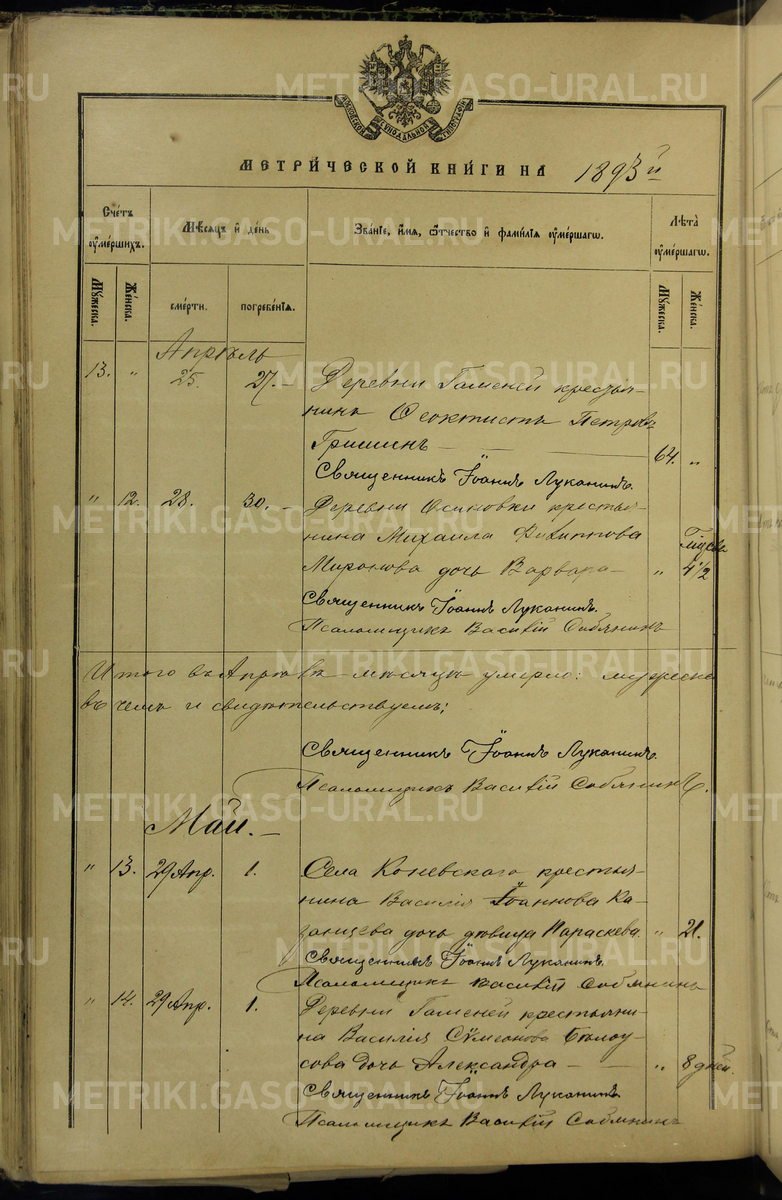 МОСКОВСКОЙ СУНОДАЛЬНОЙ ТИПОГРАФІИ
МЕТРИ́ЧЕСКОЙ КНИ́ГИ НА 1893й
Сче́тъ ᲂу҆ме́ршихъ.
Мѣ́сяцъ и҆ де́нь
Зва́нїе, и҆́мя, ѻ҆́тчество и҆ фами́лїя ᲂу҆ме́ршагѡ.
Лѣ́та ᲂу҆ме́ршагѡ.
Мꙋ́жеска. Же́нска. сме́рти. погребе́нїя. Мꙋ́жеска. Же́нска.
Апрѣль
13. " 25. 27. Деревни Гаменей крестья-
нинъ Ѳеоктистъ Петровъ
Гришинъ 64. "
Священникъ Іоаннъ Луканинъ.
" 12. 28. 30. Деревни Осиновки крестья-
нина Михаила Филиппова
Миронова дочь Варвара " 4 1/2
Священникъ Іоаннъ Луканинъ.
Псаломщикъ Василій Собянинъ
Итого въ Апрѣлѣ мѣсяцѣ умерло: мужеска
въ чемъ и свидѣтельствуемъ;
Священникъ Іоаннъ Луканинъ.
Псаломщикъ Василій Собянинъ.
Май.
" 13. 29 Апр. 1. Села Коневскаго крестья-
нина Василія Іоаннова Ка-
занцева дочь дѣвица Параскева. " 21.
Священникъ Іоаннъ Луканинъ.
Псаломщикъ Василій Собянинъ
" 14. 29 Апр. 1. Деревни Гаменей крестьяни-
на Василія Сѵмеонова Бѣлоу-
сова дочь Александра " 8 дней.
Священникъ Іоаннъ Луканинъ
Псаломщикъ Василій Собянинъ
METRIKI.GASO-URAL.RU